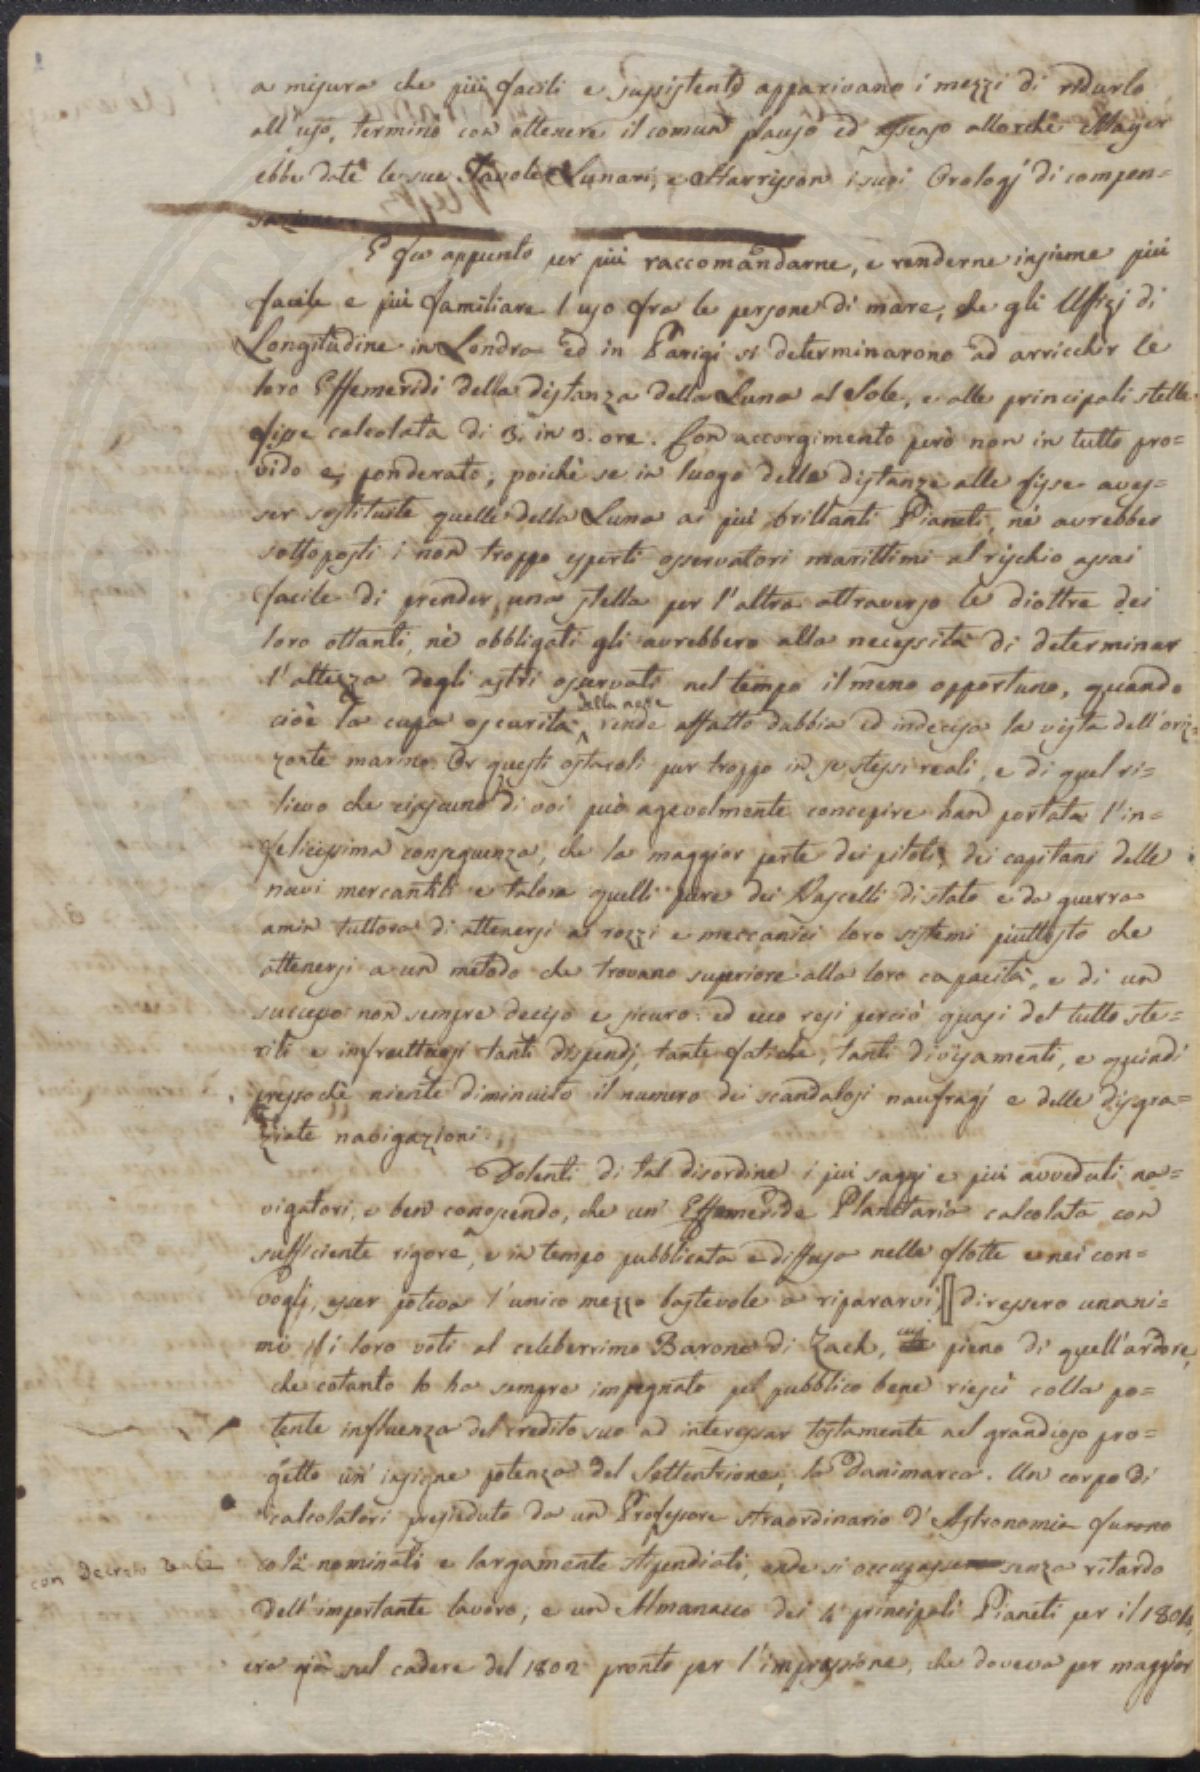 a misura che più facili e sussistenti apparivano i mezzi di ridurlo
all'uso, terminò con ottenere il comun plauso ed assenso allorchè Mayer
ebbe date le sue Tavole Lunari, e Harrison i suoi Orologj di compen=
sazione.
E fu appunto per più raccomandarne, e renderne insieme più
facile e più familiare l'uso fra le persone di mare, che gli Uffizj di
Longitudine in Londra ed in Parigi si determinarono ad arricchir le
loro Effemeridi della distanza della Luna al Sole, e alle principali stelle
fisse calcolata di 3. in 3. ore. Con accorgimento però non in tutto pro=
vido e ponderato; poichè se in luogo delle distanze alle fisse aves=
ser sostituite quelle della Luna ai più brillanti Pianeti, nè avrebber
sottoposti i non troppo esperti osservatori marittimi al rischio assai
facile di prender una stella per l'altra attraverso le diottre dei
loro ottanti, nè obbligati gli avrebbero alla necessità di determinar
l'altezza degli astri osservati nel tempo il meno opportuno, quando
cioè la cupa oscurità della notte rende affatto dubbia ed indecisa la vista dell'oriz=
zonte marino. Or questi ostacoli pur troppo in se stessi reali, e di quel ri=
lievo che ciascuno di voi può agevolmente concepire han portata l'in=
felicissima conseguenza, che la maggior parte dei piloti, dei capitani delle
navi mercantili e talora quelli pure dei Vascelli di stato e da guerra
amin tuttora di attenersi ai rozzi e meccanici loro sistemi piuttosto che
attenersi a un metodo che trovano superiore alla loro capacità, e di un
successo non sempre deciso e sicuro: ed ecco resi perciò quasi del tutto ste=
rili e infruttuosi tanti dispendj, tante fatiche, tanti divisamenti, e quindi
pressochè niente diminuito il numero dei scandalosi naufragj e delle disgra=
ziate navigazioni.
Dolenti di tal disordine i più saggi e più avveduti na=
vigatori, e ben conoscendo, che un' Effemeride Planetaria calcolata con
sufficiente rigore, e in tempo pubblicata e diffusa nelle flotte e nei con=
vogli, esser poteva l'unico mezzo bastevole a ripararvi, diressero unani=
mi i loro voti al celeberrimo Barone di Zach, cui pieno di quell'ardore,
che cotanto lo ha sempre impegnato pel pubblico bene riescì colla po=
tente influenza del credito suo ad interessar tostamente nel grandioso pro=
getto un' insigne potenza del Settentrione, la Danimarca. Un corpo di
calcolatori presieduto da un Professore straordinario d'Astronomia furono
con decreto reale
colà nominati e largamente stipendiati, onde si occupasser senza ritardo
dell'importante lavoro; e un Almanacco dei 4 principali Pianeti per il 1804,
era già sul cadere del 1802 pronto per l'impressione, che doveva per maggior